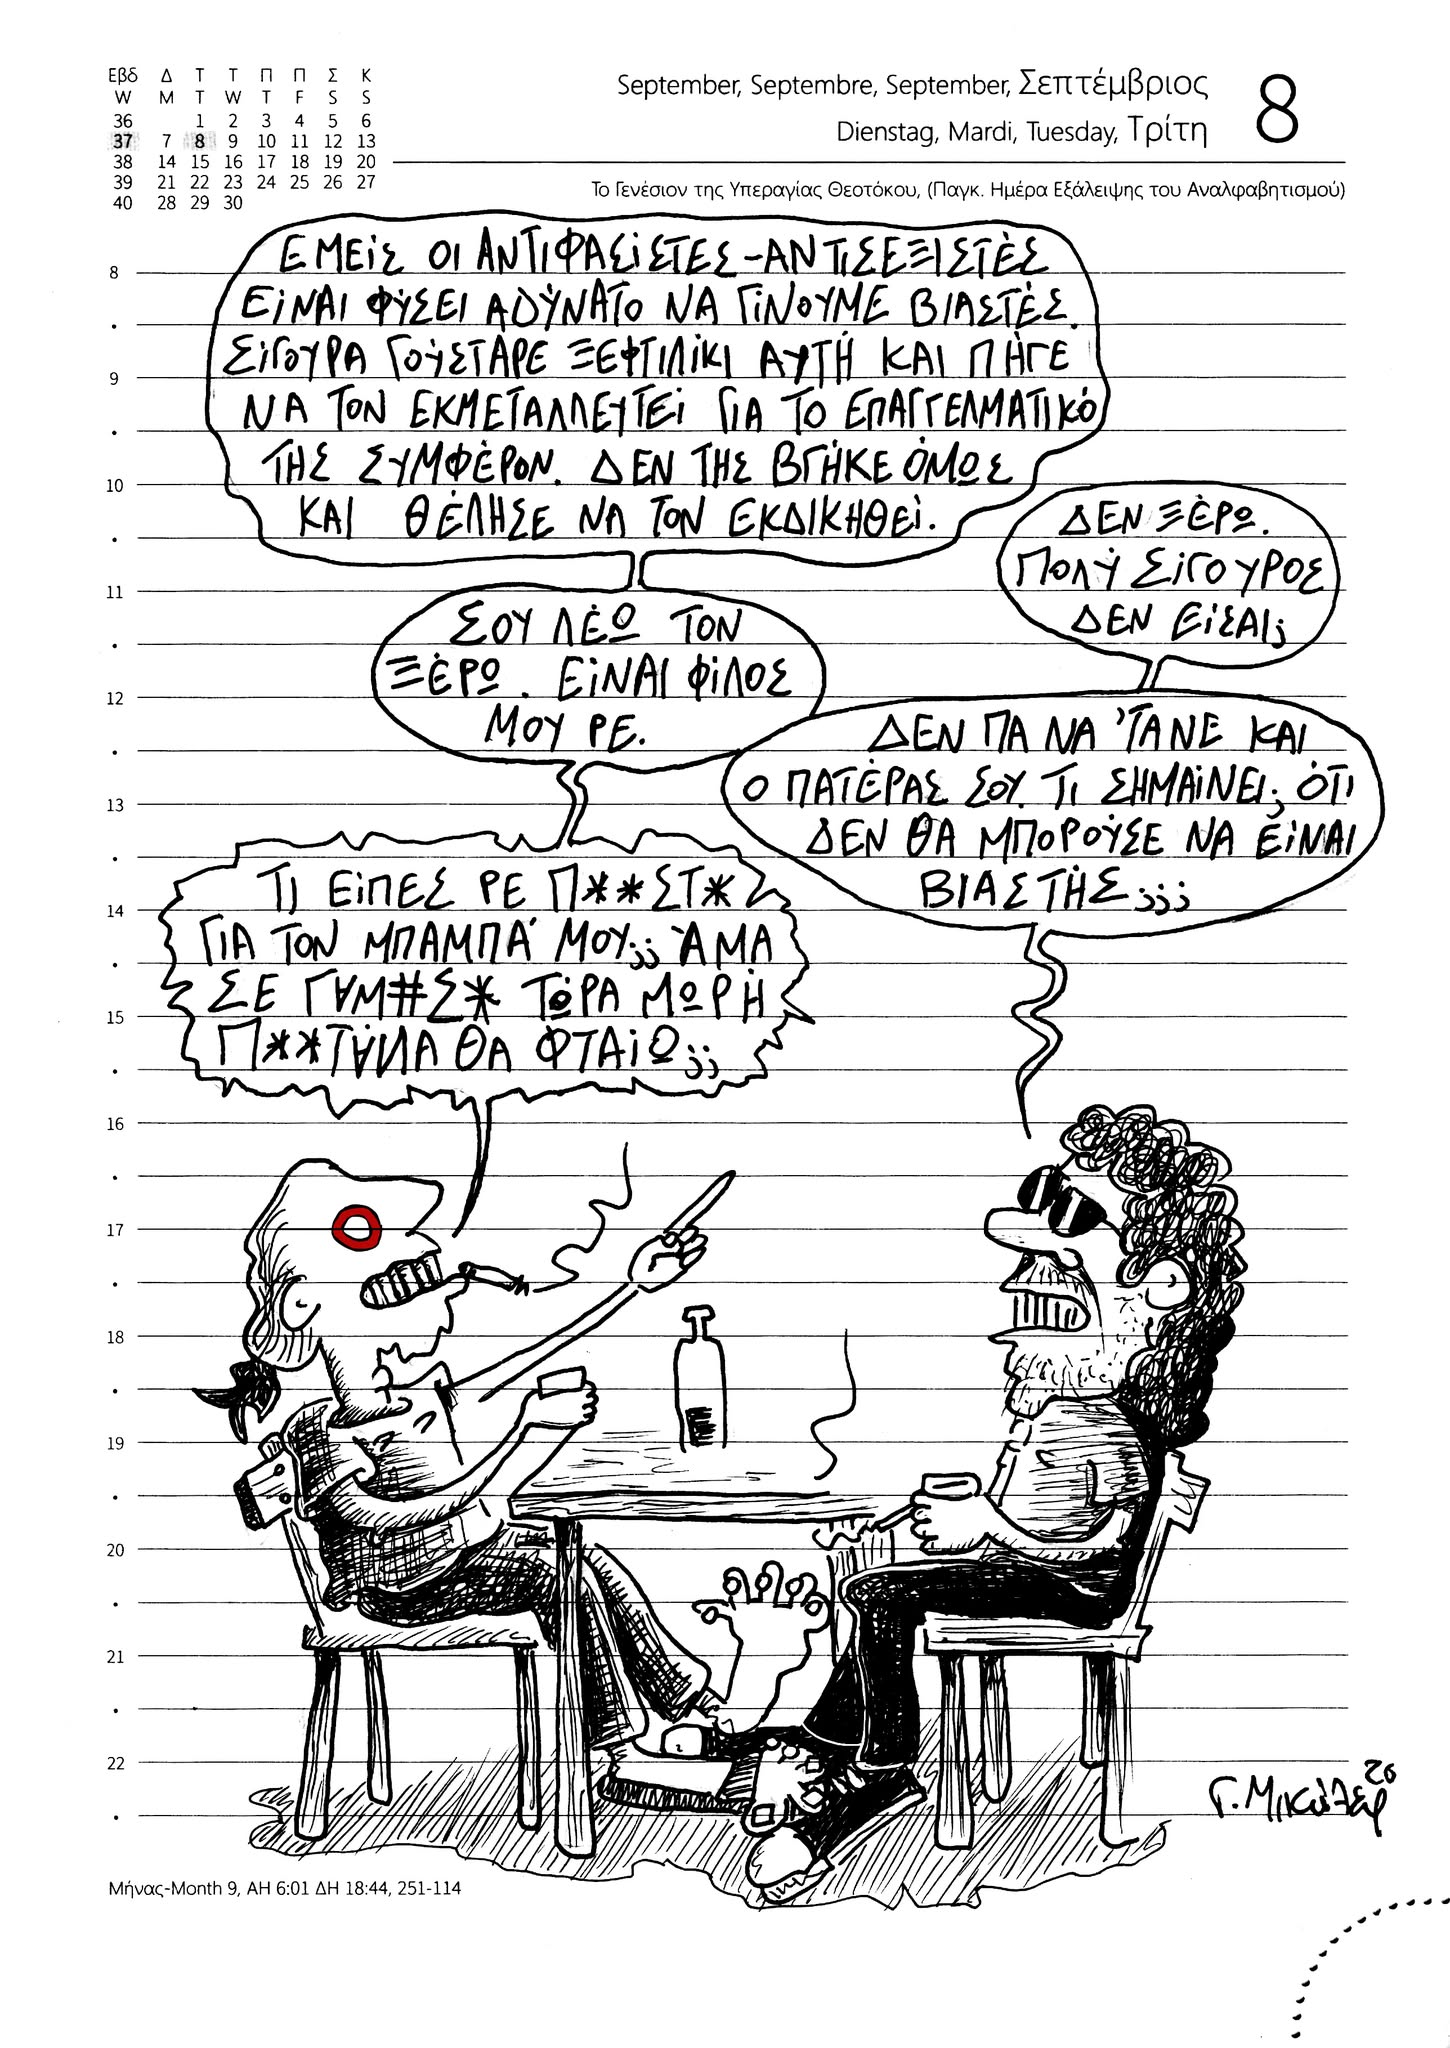 Εβδ Δ Τ Τ Π Π Σ Κ
W M T W T F S S
36 1 2 3 4 5 6
37 7 8 9 10 11 12 13
38 14 15 16 17 18 19 20
39 21 22 23 24 25 26 27
40 28 29 30
September, Septembre, September, Σεπτέμβριος
Dienstag, Mardi, Tuesday, Τρίτη
8
Το Γενέσιον της Υπεραγίας Θεοτόκου, (Παγκ. Ημέρα Εξάλειψης του Αναλφαβητισμού)
ΕΜΕίΣ ΟΙ ΑΝΤΙΦΑΣίΣΤΕΣ-ΑΝΤΙΣΕΞΙΣΤέΣ
ΕίΝΑΙ ΦύΣΕΙ ΑΔύΝΑΤΟ ΝΑ ΓίΝΟΥΜΕ ΒΙΑΣΤέΣ.
ΣίΓΟΥΡΑ ΓΟύΣΤΑΡΕ ΞΕΦΤΙΛίΚΙ ΑΥΤΉ ΚΑΙ ΠΉΓΕ
ΝΑ ΤΟΝ ΕΚΜΕΤΑΛΛΕΥΤΕί ΓΙΑ ΤΟ ΕΠΑΓΓΕΛΜΑΤΙΚΌ
ΤΗΣ ΣΥΜΦέΡΟΝ. ΔΕΝ ΤΗΣ ΒΓΉΚΕ ΌΜΩΣ
ΚΑΙ ΘέΛΗΣΕ ΝΑ ΤΟΝ ΕΚΔΙΚΗΘΕί.
ΔΕΝ ΞέΡΩ.
ΠΟΛύ ΣίΓΟΥΡΟΣ
ΔΕΝ ΕίΣΑΙ;
ΣΟΥ ΛέΩ ΤΟΝ
ΞέΡΩ. ΕίΝΑΙ ΦίΛΟΣ
ΜΟΥ ΡΕ.
ΔΕΝ ΠΑ ΝΑ 'ΤΑΝΕ ΚΑΙ
Ο ΠΑΤέΡΑΣ ΣΟΥ. ΤΙ ΣΗΜΑίΝΕΙ; ΌΤΙ
ΔΕΝ ΘΑ ΜΠΟΡΟύΣΕ ΝΑ ΕίΝΑΙ
ΒΙΑΣΤΉΣ;;;
ΤΙ ΕίΠΕΣ ΡΕ Π**ΣΤ*
ΓΙΑ ΤΟΝ ΜΠΑΜΠΆ ΜΟΥ;; ΆΜΑ
ΣΕ ΓΑΜ#Σ* ΤΏΡΑ ΜΩΡΉ
Π**ΤΆΝΑ ΘΑ ΦΤΑίΩ;;
8
9
10
11
12
13
14
15
16
17
18
19
20
21
22
Γ. Μικάλεφ 20
Μήνας-Month 9, ΑΗ 6:01 ΔΗ 18:44, 251-114